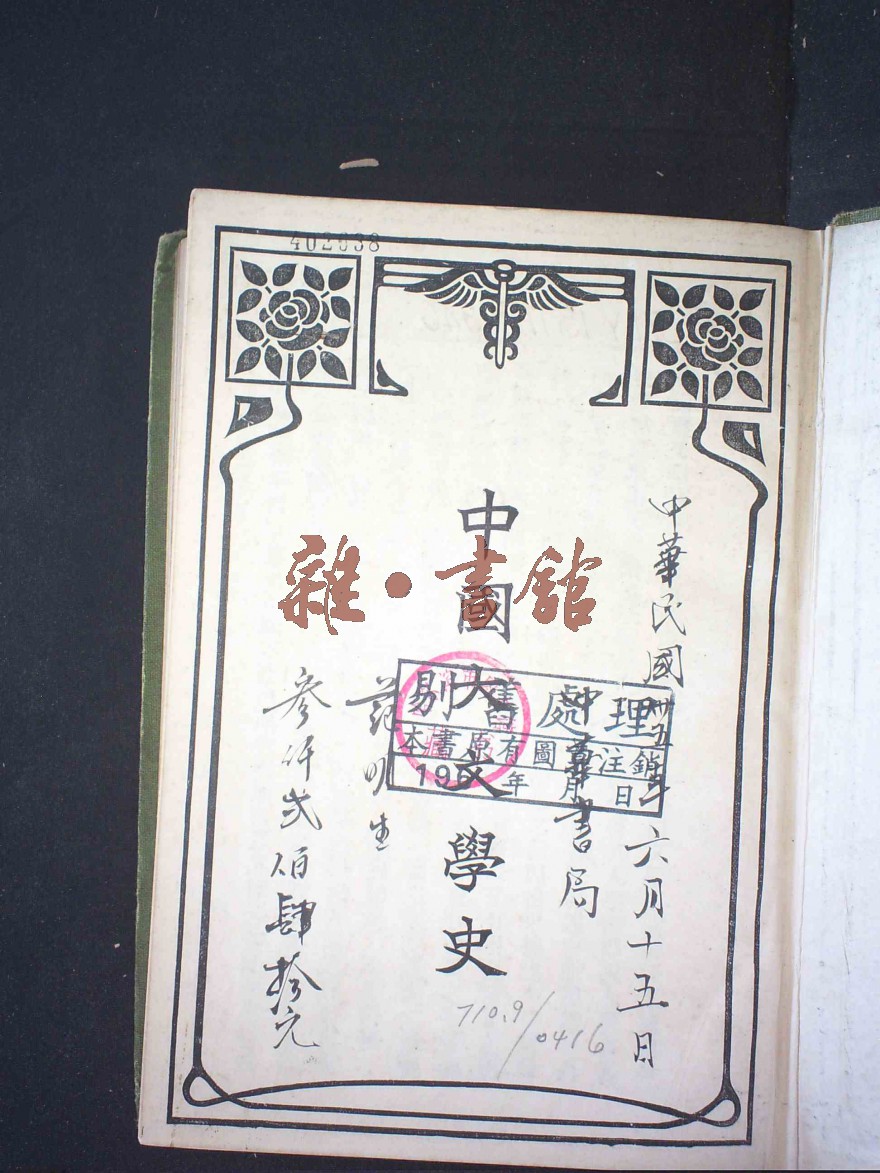 402638
中華民國卅五年六月十五日
中華書局
中國大文學史
范明生
參仟貳佰肆拾元
雜·書館
剔舊處理
本書原有圖章注銷
195 年 月 日
710.9/0416